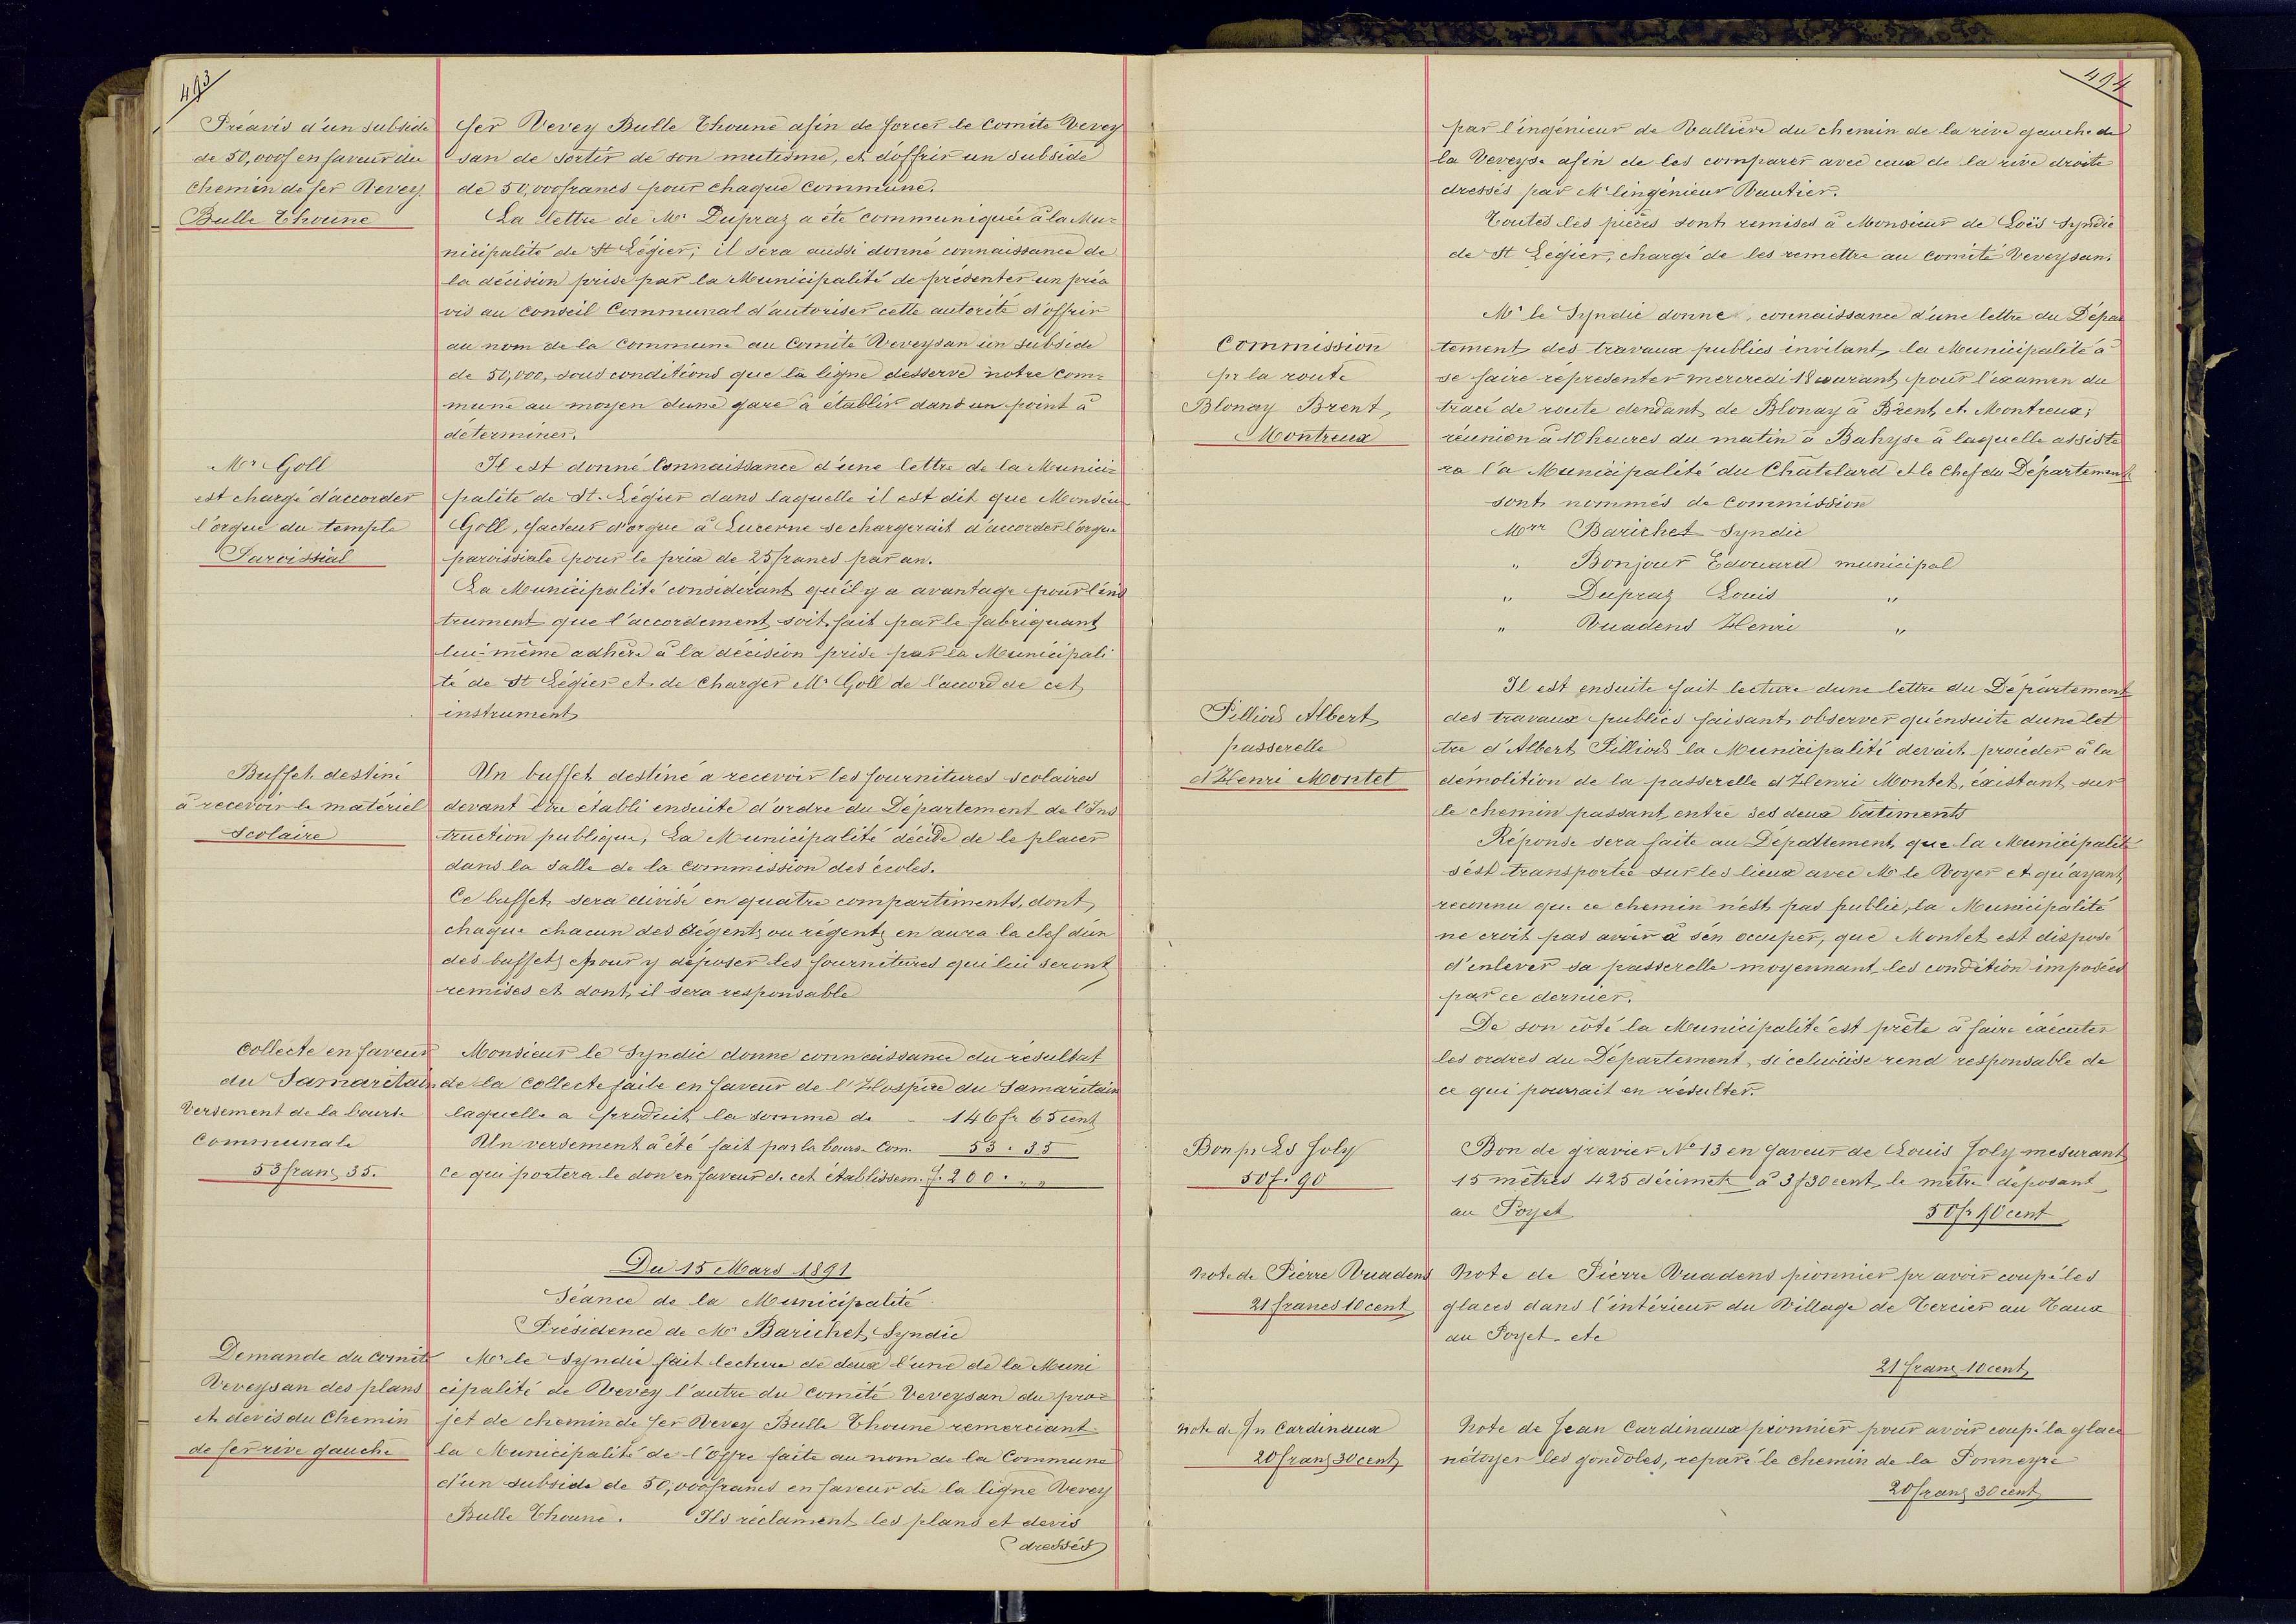 493
Préavis d'un subside
de 50,000f en faveur du
chemin de fer Vevey
Bulle Thoune
fer Vevey Bulle Thoune afin de forcer le Comité Vevey
san de sortir de son mutisme, et d'offrir un subside
de 50,000 francs pour chaque commune.
La lettre de Mr Dupraz a été communiquée à la Mu=
nicipalité de St Légier; il sera aussi donné connaissance de
la décision prise par la Municipalité de présenter un préa
vis au conseil Communal d'autoriser cette autorité d'offrir
au nom de la Commune au Comité Veveysan un subside
de 50,000, sous conditions que la ligne desserve notre com=
mune au moyen d'une gare à établir dans un point à
déterminer.
Mr Goll
est chargé d'accorder
l'orgue du temple
Paroissial
Il est donné Connaissance d'une lettre de la Munici=
palité de St. Légier dans laquelle il est dit que Monsieu
Goll, facteur d'orgue à Lucerne se chargerait d'accorder l'orgue
paroissiale pour le prix de 25 francs par an.
La Municipalité considérant qu'il y a avantage pour l'ins
trument que l'accordement soit fait par le fabriquant
lui-même adhère à la décision prise par la Municipali
té de St Légier et de charger Mr Goll de l'accord de cet
instrument
Buffet destiné
à recevoir le matériel
Scolaire
Un buffet destiné a recevoir les fournitures scolaires
devant être établi ensuite d'ordre du Département de l'Ins
truction publique, La Municipalité décide de le placer
dans la salle de la commission des écoles.
Ce buffet sera divisé en quatre compartiments, dont
chaque chacun des Régents ou régente en aura la clef d'un
des buffets pour y déposer les fournitures qui lui seront
remises et dont il sera responsable
Collecte en faveur
du Samaritain
Versement de la bourse
Communale
53 franc 35.
Monsieur le Syndic donne connaissance du résultat
de la collecte faite en faveur de l'Hospice du Samaritain
laquelle a produit la somme de - 146 fr 65 cent
Un versement à été fait par la bourse Com. 53.35
ce qui portera le don en faveur de cet établissem. f. 200. „ „
Du 15 Mars 1891
Séance de la Municipalité
Présidence de Mr Barichet Syndic
Demande du comité
Veveysan des plans
et devis du Chemin
de fer rive gauche
Mr le Syndic fait lecture de deux l'une de la Muni
cipalité de Vevey l'autre du comité Veveysan du pro=
jet de chemin de fer Vevey Bulle Thoune remerciant
la Municipalité de l'Offre faite au nom de la Commune
d'un subside de 50,000 francs en faveur de la ligne Vevey
Bulle Thoune. Ils réclament les plans et devis
dressés
494
par l'ingénieur de Vallière du chemin de la rive gauche de
la Veveyse afin de les comparer avec ceux de la rive droite
dressés par Mr l'ingénieur Vautier.
Toutes les pièces sont remises à Monsieur de Loës Syndic
de St Légier, chargé de les remettre au comité Veveysan.
Commission
pr la route
Blonay Brent
Montreux
Mr le Syndic donne connaissance d'une lettre du Dépar
tement des travaux publics invitant la Municipalité à
se faire représenter mercredi 18 courant pour l'examen du
tracé de route tendant de Blonay à Brent et Montreux;
réunion à 10 heures du matin à Bahyse à laquelle assiste
ra la Municipalité du Châtelard et le Chef du Département
sont nommés de commission
Mrrs Barichet Syndic
" Bonjour Edouard municipal
" Dupraz Louis "
" Vuadens Henri "
Pilliod Albert
passerelle
d'Henri Montet
Il est ensuite fait lecture d'une lettre du Département
des travaux publics faisant observer qu'ensuite d'une let
tre d'Albert Pilliod la Municipalité devait procéder à la
démolition de la passerelle d'Henri Montet, éxistant sur
le chemin passant entre ses deux bâtiments
Réponse sera faite au Département que la Municipalité
s'est transportée sur les lieux avec Mr le Voyer et qu'ayant
reconnu que ce chemin n'est pas public, la Municipalité
ne croit pas avoir à s'en occuper, que Montet est disposé
d'enlever sa passerelle moyennant les condition imposées
par ce dernier.
De son côté la Municipalité est prête à faire éxécuter
les ordres du Département, si celui-ci se rend responsable de
ce qui pourrait en résulter.
Bon pr Ls Joly
50f. 90
Bon de gravier No 13 en faveur de Louis Joly mesurant
15 mètres 425 décimet à 3f30 cent le mètre déposant
au Poyet 50fr 90 cent
Note de Pierre Vuadens
21 francs 10 cent
Note de Pierre Vuadens pionnier pr avoir coupé les
glaces dans l'intérieur du Village de Tercier au Taux
au Poyet etc
21 franc 10 cent
Note de Jn Cardinaux
20 franc 30 cent
Note de Jean Cardinaux pionnier pour avoir coupé la glace
nétoyer les gondoles, réparé le chemin de la Ponneyre
20 franc 30 cent